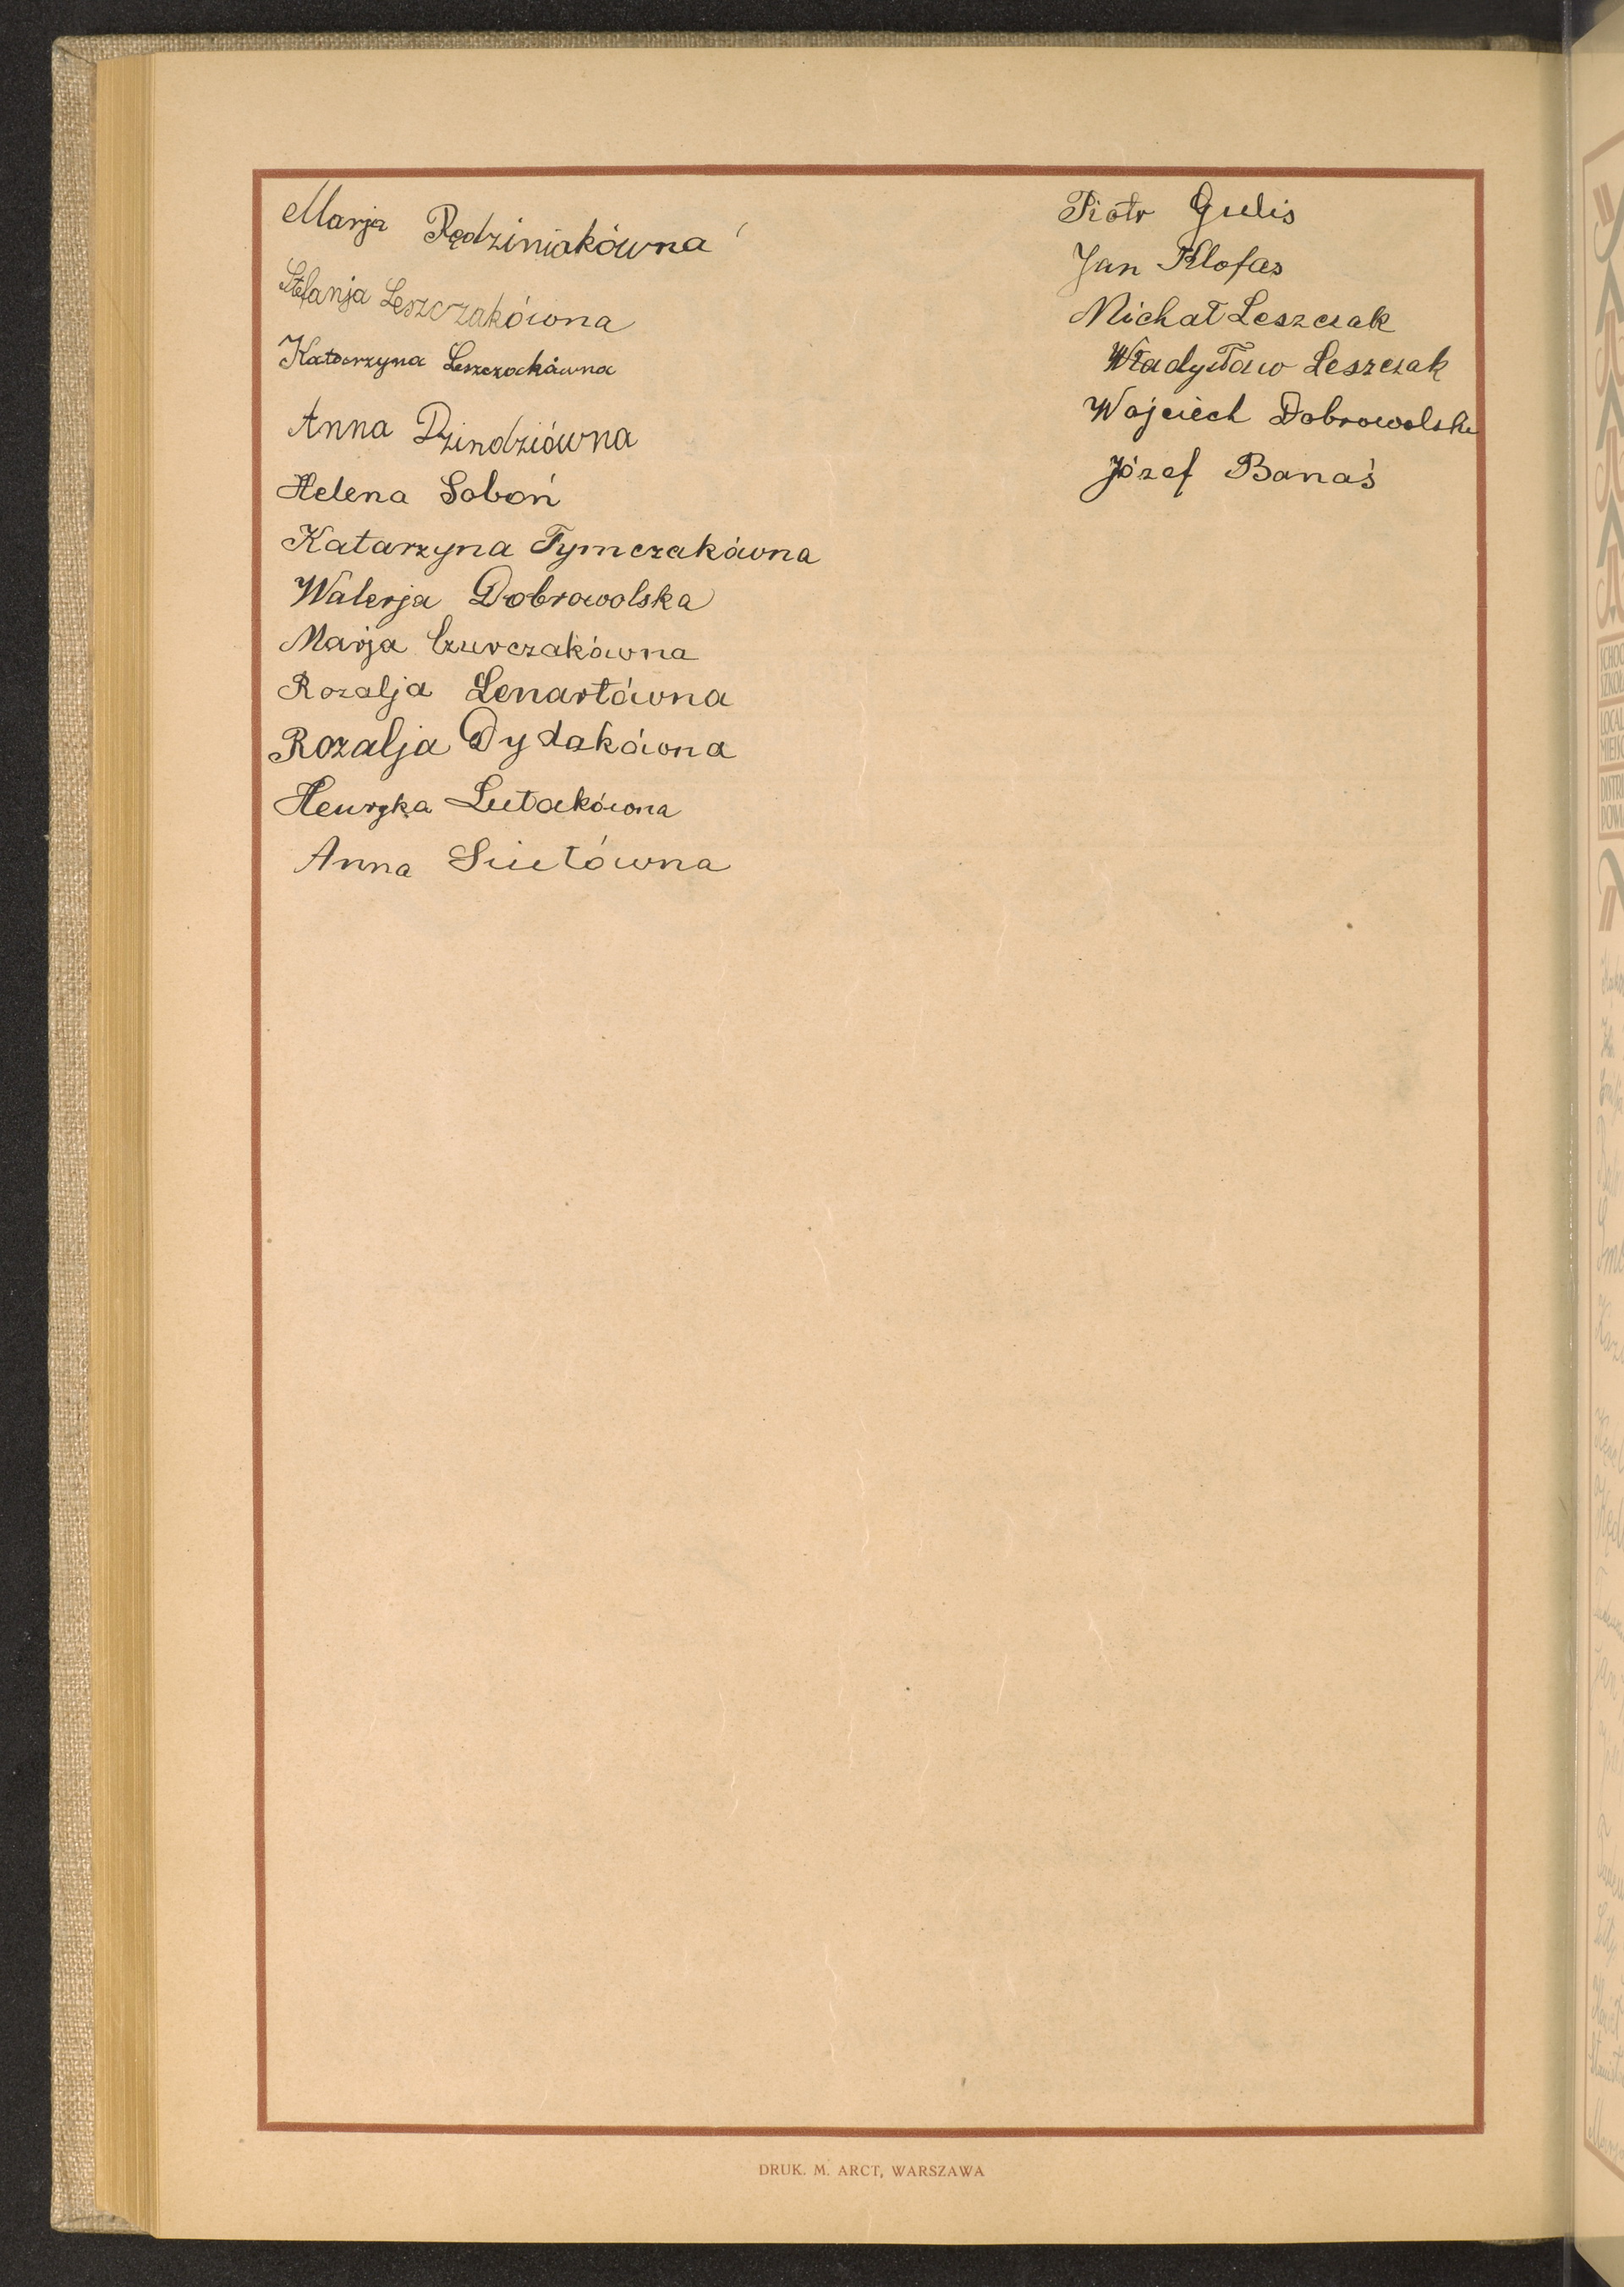 Marja Rędziniakówna
Stefanja Leszczakówna
Katarzyna Leszczakówna
Anna Dzindziówna
Helena Soboń
Katarzyna Tymczakówna
Walerja Dobrowolska
Marja Czurczakówna
Rozalja Lenartówna
Rozalja Dydakówna
Henryka Lutakówna
Anna
Piotr Gulis
Jan Klofas
Michał Leszczak
Władysław Leszczak
Wojciech Dobrowolski
Józef Banaś
DRUK. M. ARCT, WARSZAWA